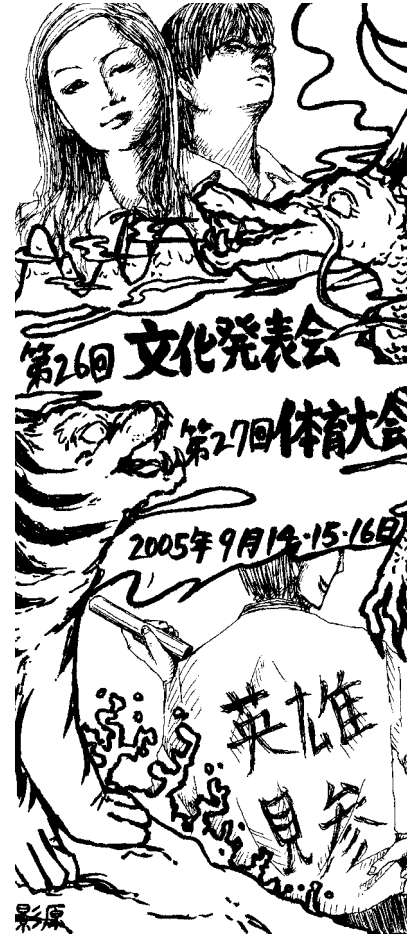 第26回 文化発表会
第27回 体育大会
2005年9月14・15・16日
英雄
見参
影原